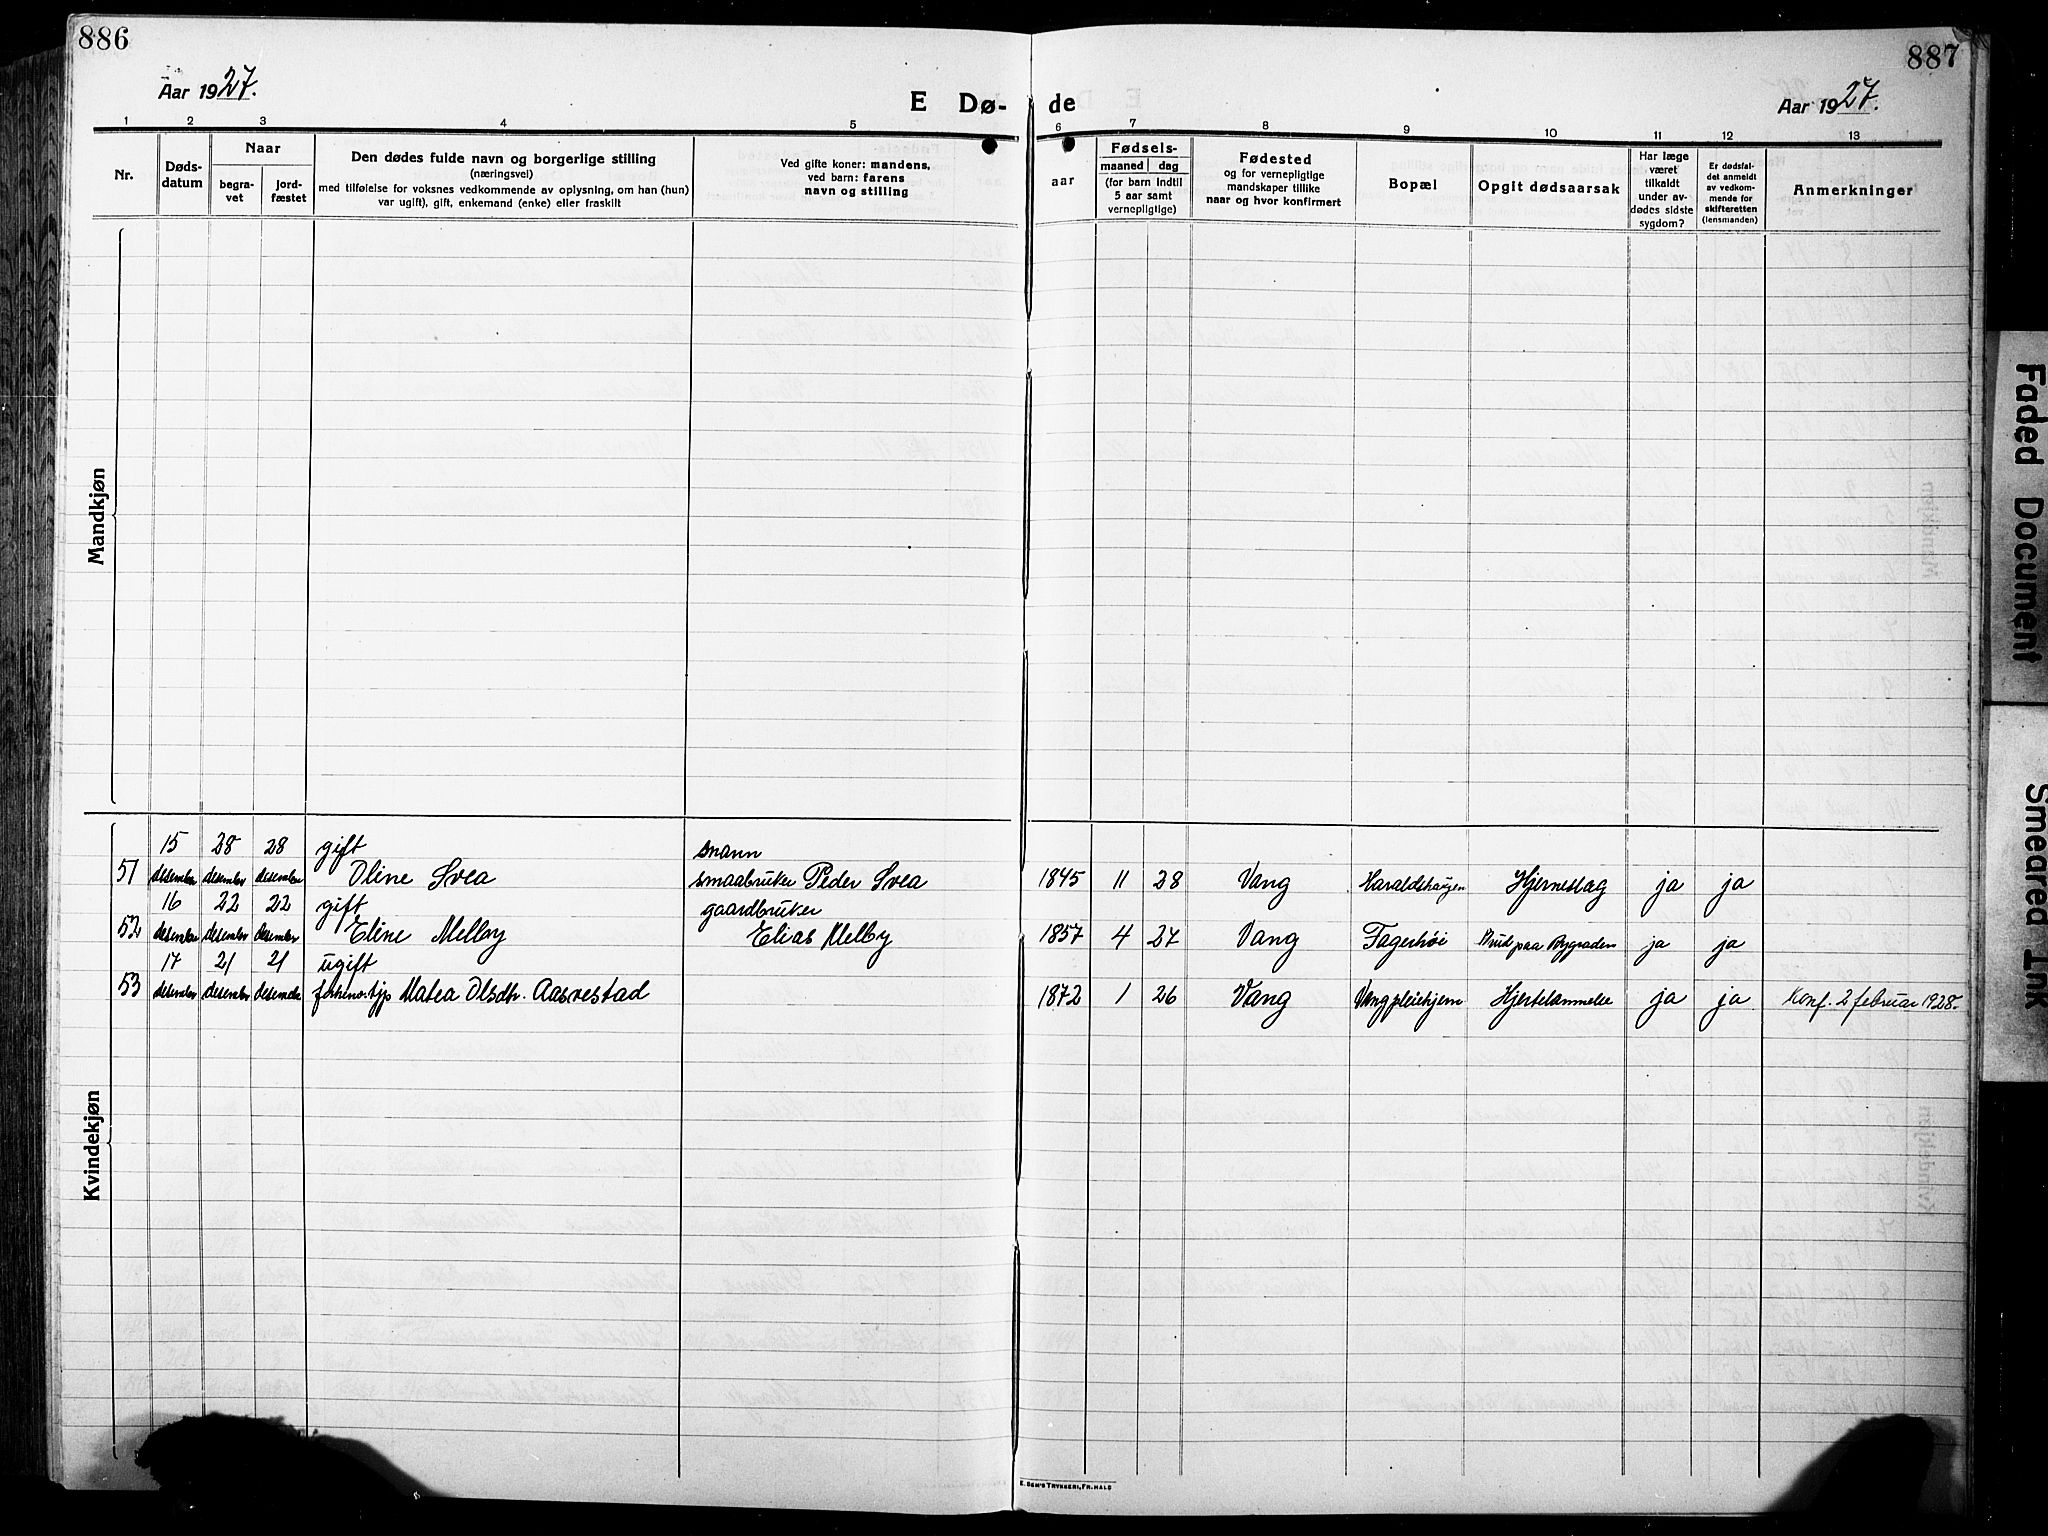 886
887
Aar 1927.
E Dø-
de
Aar 1927.
1 2 3 4 5 6 7 8 9 10 11 12 13
Nr.
Døds-
datum
Naar
begra-
vet
jord-
fæstet
Den dødes fulde navn og borgerlige stilling
(næringsvei)
med tilføielse for voksnes vedkommende av oplysning, om han (hun)
var ugift), gift, enkemand (enke) eller fraskilt
Ved gifte koner: mandens,
ved barn: farens
navn og stilling
aar
Fødsels-
maaned dag
(for barn indtil
5 aar samt
vernepligtige)
Fødested
og for vernepligtige
mandskaper tillike
naar og hvor konfirmert
Bopæl
Opgit dødsaarsak
Har læge
været
tilkaldt
under av-
dødes sidste
sygdom?
Er dødsfal-
det anmeldt
av vedkom-
mende for
skifteretten
(lensmanden)
Anmerkninger
Mandkjøn
Kvindekjøn
15 28 28 gift
51 desember desember desember Oline Svea smaabruker Peder Svea 1845 11 28 Vang Haraldshaugen Hjerneslag ja ja
16 22 22 gift gaardbruker
52 desember desember desember Eline Melby Elias Melby 1857 4 27 Vang Fagerhøi Brud paa Rygraden ja ja
17 21 21 ugift
53 desember desember desember forhenv. tjp Matea Olsdtr. Aasvestad 1872 1 26 Vang Vang pleiehjem Hjertelammelse ja ja Konf. 2 februar 1928.
E. Sem's Trykkeri, Fr.hald
Faded Document
Smeared Ink